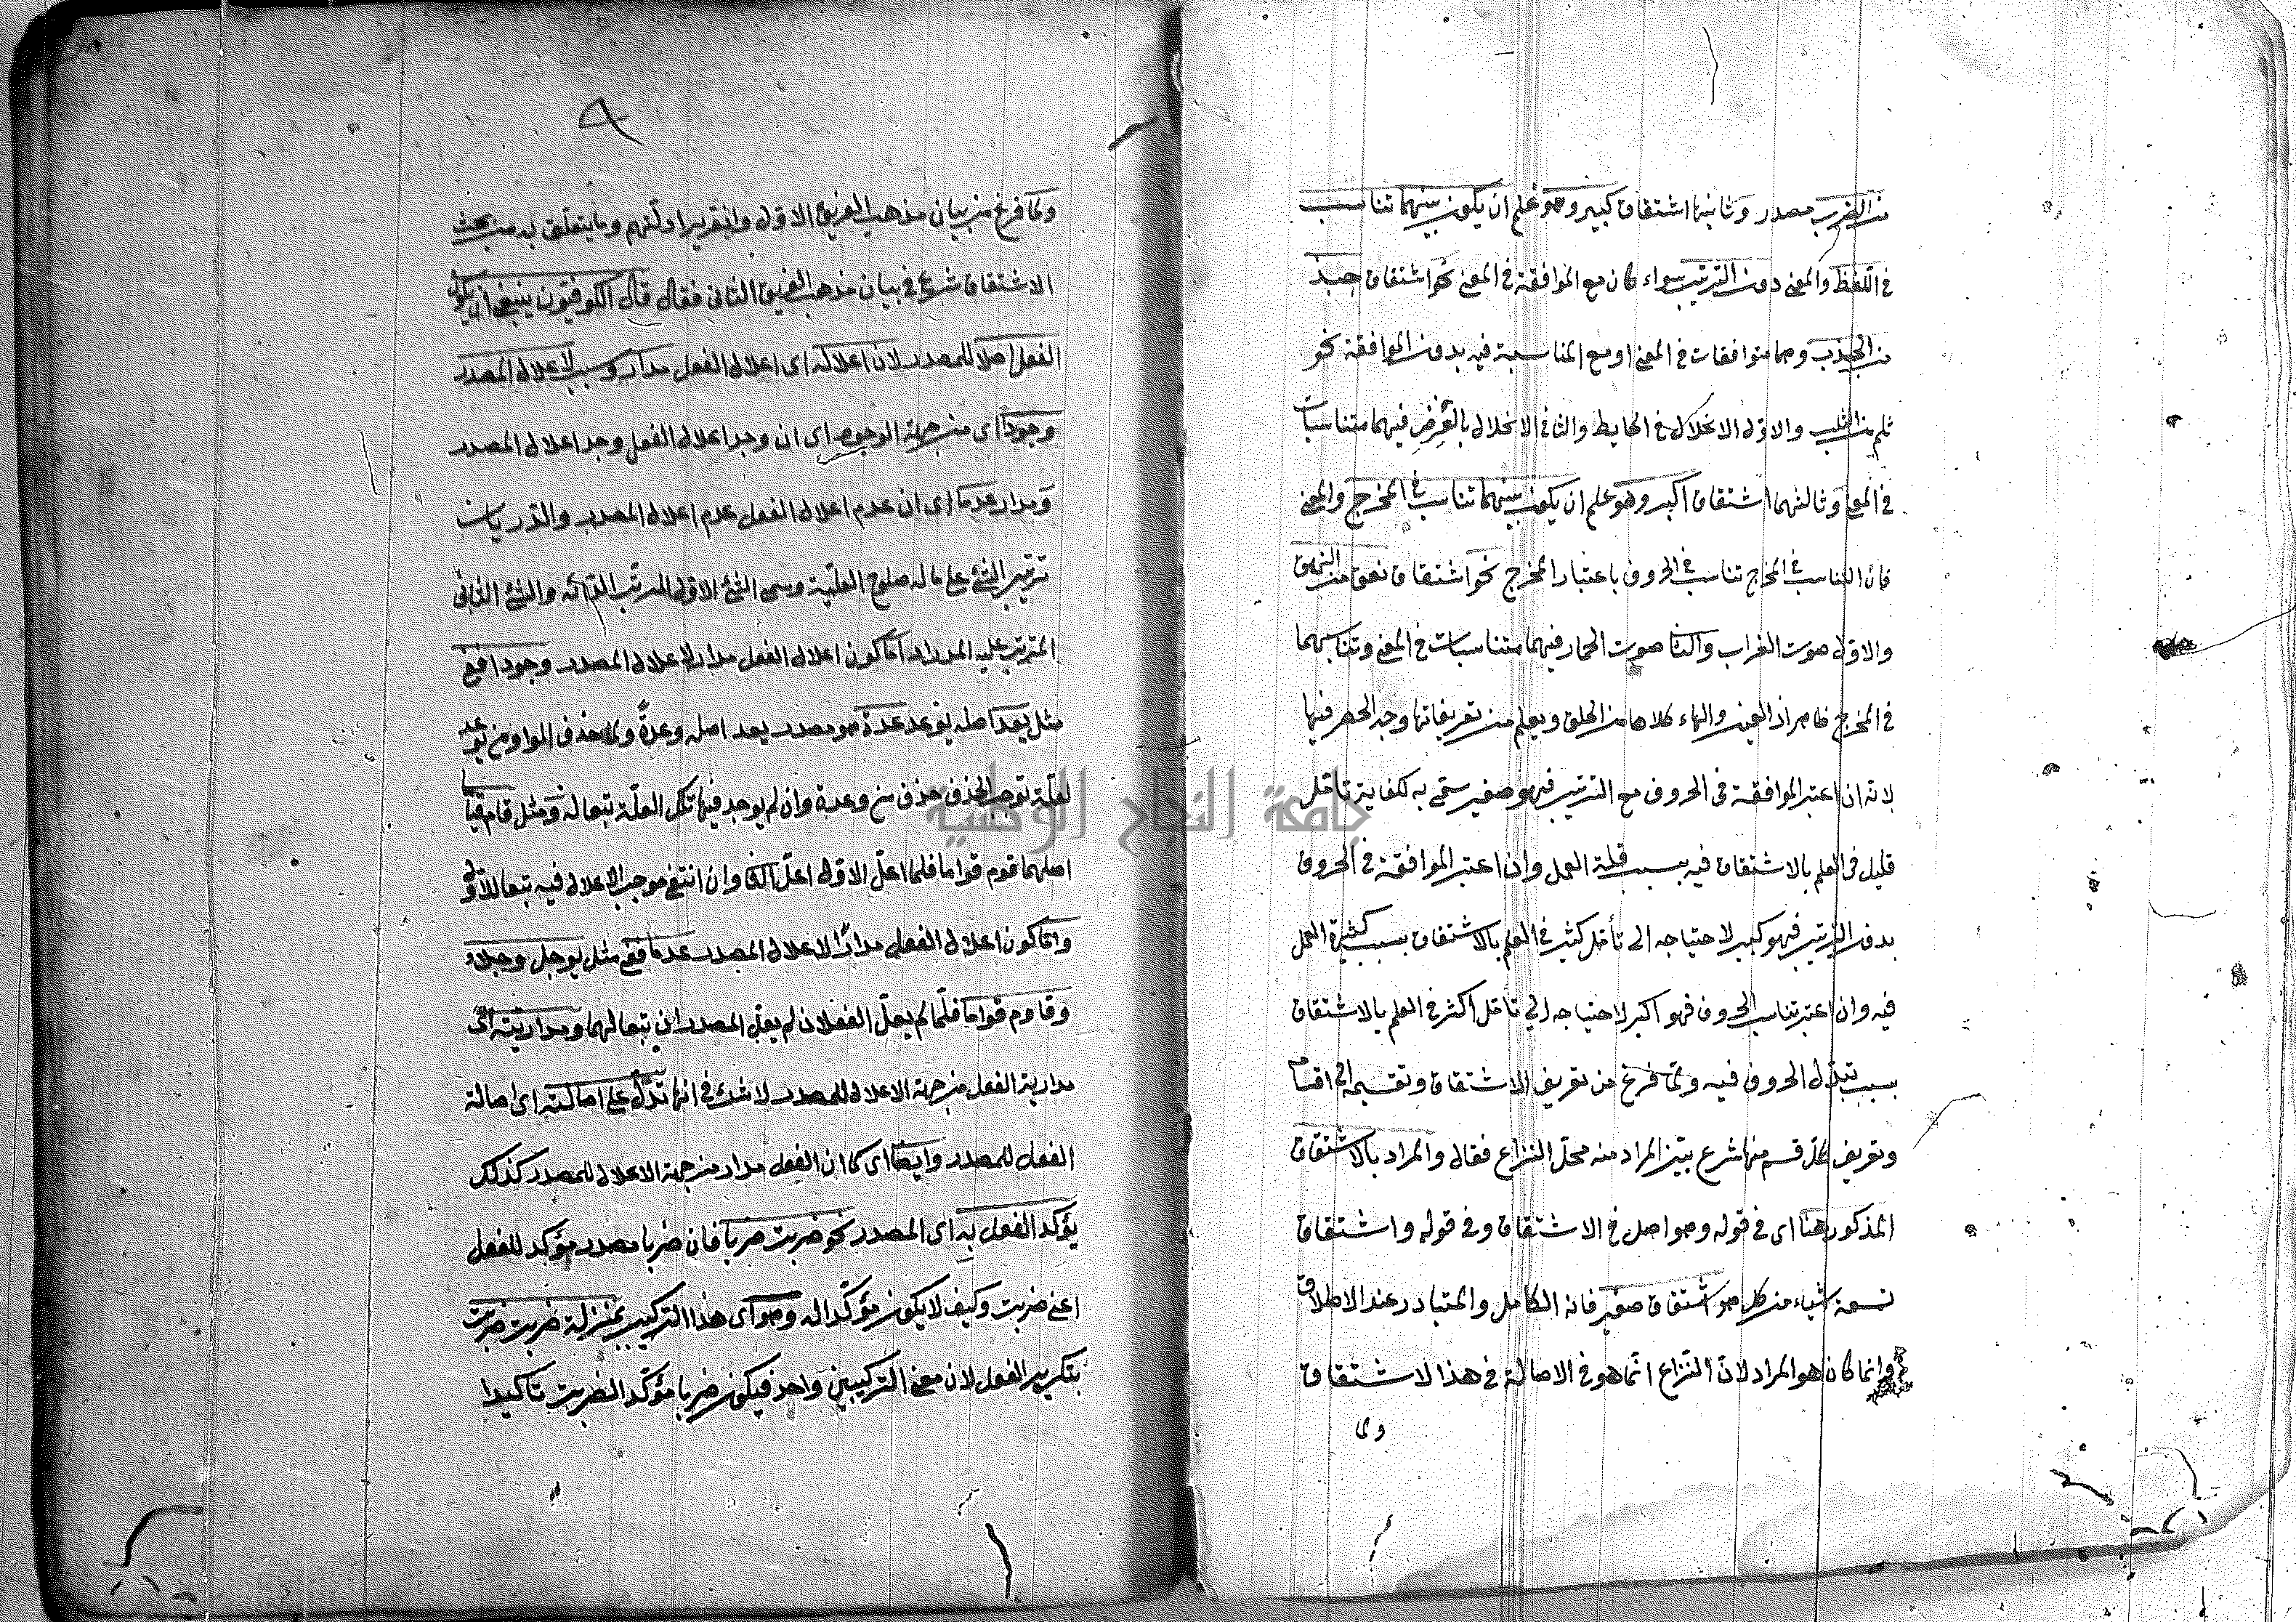 من الضرب مصدر وثانيها اشتقاق كبير وهو علم ان يكون بينهما تناسب
في اللفظ والمعنى دون الترتيب سواء كان مع الموافقة في المعنى نحو اشتقاق جبذ
من الجذب وهما متوافقان في المعنى او مع المناسبة فيه بدون الموافقة نحو
ثلم من الثلب والاول الاخلال في الحايط والثاني الاخلال بالعرض فهما متناسبان
في المعنى وثالثهما اشتقاق اكبر وهو علم ان يكون بينهما تناسب في المخرج والمعنى
فان التناسب في المخرج تناسب في الحروف باعتبار المخرج نحو اشتقاق نعق من النهق
والاول صوت الغراب والثا صوت الحمار فهما متناسبان في المعنى وتناسبهما
في المخرج ظاهر اذ العين والهاء كلاهما من الحلق ويعلم من تعريفاتها وجه الحصر فيها
لانه ان اعتبر الموافقة في الحروف مع الترتيب فهو صغير سمى به لكفاية تأمل
قليل في العلم بالاشتقاق فيه بسبب قلة العمل وان اعتبر الموافقة في الحروف
بدون الترتيب فهو كبير لاحتياجه الى تأمل كثير في العلم بالاشتقاق بسبب كثيرة العمل
فيه وان اعتبر تناسب الحروف فهو اكبر لاحتياجه الي تأمل اكثر في العلم بالاشتقاق
بسبب تبدل الحروف فيه ولما فرغ من تعريف الاشتقاق وتقسيمه الى اقسام
وتعريف كل قسم منها شرع بتين المراد منه محل النزاع فقال والمراد بالاشتقاق
المذكور هنا اى في قوله وهو اصل في الاشتقاق وفي قوله واشتقاق
تسعة اشياء من كل هو اشتقاق صغير فانه الكامل والمتبادر عند الاطلاق
وانما كان هو المراد لان النزاع انما هو في الاصالة في هذا الاشتقاق
ولما
ولما فرغ من بيان مذهب الفريق الاول وتقرير ادلتهم وما يتعلق به من بحث
الاشتقاق شرع في بيان مذهب الفريق الثانى فقال قال الكوفيون ينبغى ان يكون
الفعل اصلا للمصدر لان اعلاله اى اعلال الفعل مدار وسبب لاعلال المصدر
وجودا اى من جهة الوجود اى ان وجد اعلال الفعل وجد اعلال المصدر
ومدار عدما اى ان عدم اعلال الفعل عدم اعلال المصدر والدريان
ترتيب الشئ على ما له صلوح العلية وسمى الشئ الاول المدرتب الدائه والشئ الثانى
المترتب عليه المدار اما كون اعلال الفعل مدار لاعلال المصدر وجودا ففى
مثل يعد اصله يوعد عدة هو مصدر يعد اصله وعدة ولما حذف الواو من يوعد
لعلة توجب الحذف حذف من وعدة وان لم يوجد فيها تلك العلة تبعا له ومثل قام قياما
اصلهما قوم قواما فلما اعل الاول اعل الثا وان انتفى موجب الاعلال فيه تبعا للاول
واما كون اعلال الفعل مدارا لاعلال المصدر عدما ففى مثل يوجل وجلا
وقاوم قواما فلما لم يعل الفعلان لم يعل المصدران تبعا لهما ومداريته اى
مدارية الفعل من جهة الاعلال للمصدر لا شك في انها تدل على اصالته اى اصالة
الفعل للمصدر وايضا اى كما ان الفعل مدار من جهة الاعلال للمصدر كذلك
يؤكد الفعل به اى المصدر نحو ضربت ضربا فان ضربا مصدر مؤكد للفعل
اعنى ضربت وكيف لا يكون مؤكدا له وهو اى هذا التركيب بمنزلة ضربت ضربت
بتكرير الفعل لان معنى التركيبين واحد فيكون ضربا مؤكدا لضربت تاكيدا
جامعة النجاح الوطنية